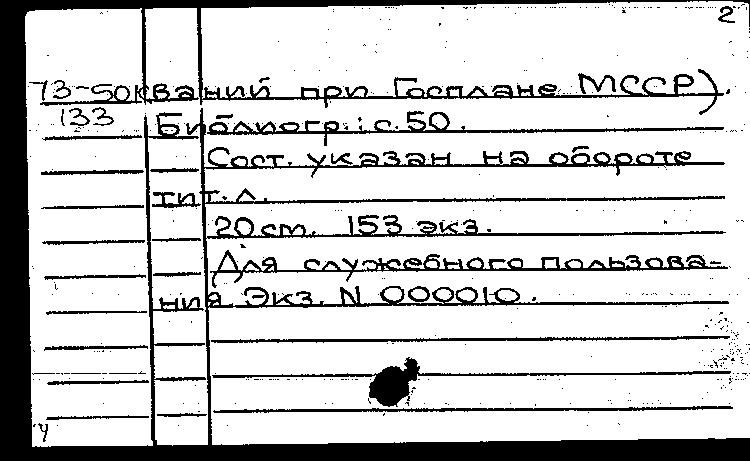 2
73-5ок ваний при Госплане МССР).
133 Библиогр.: с. 50.
Сост. указан на обороте
тит. л.
20 см. 153 экз.
Для служебного пользова-
ния Экз. N 000010.